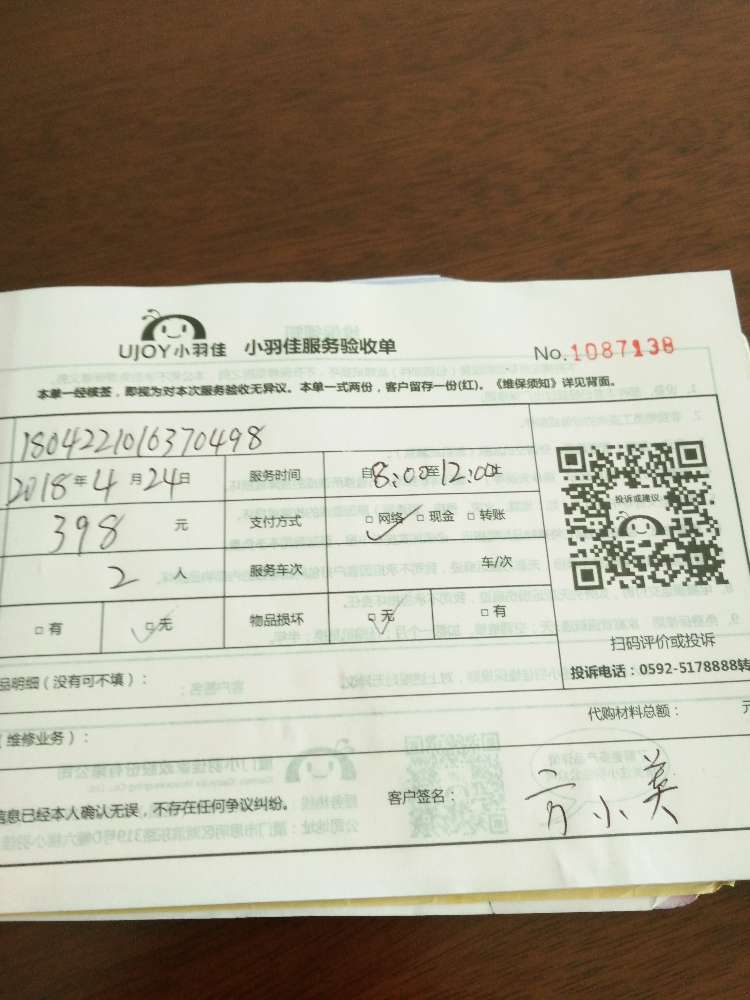 UJOY小羽佳 小羽佳服务验收单 No.1087138
本单一经核签，即视为对本次服务验收无异议。本单一式两份，客户留存一份(红)。《维保须知》详见背面。
1804221016370498
2018年4月24日 服务时间 自8:00至12:00止
398元 支付方式 □网络 □现金 □转账
2人 服务车次 车/次
□有 □无 物品损坏 □无 □有
投诉或建议
扫码评价或投诉
投诉电话：0592-5178888转
品明细（没有可不填）：
代购材料总额： 元
（维修业务）：
信息已经本人确认无误，不存在任何争议纠纷。 客户签名： 小英